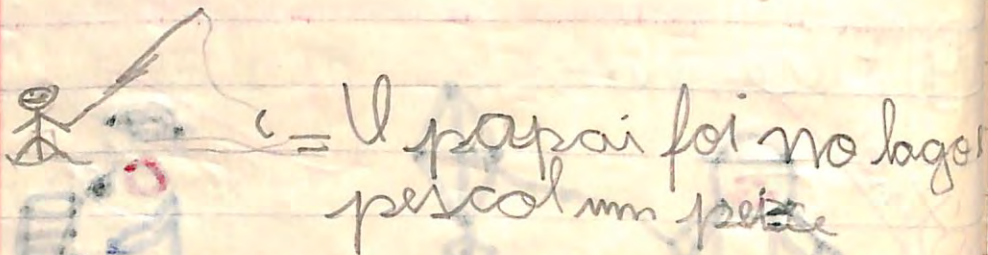 = O papai foi no lago
pescol um peixe